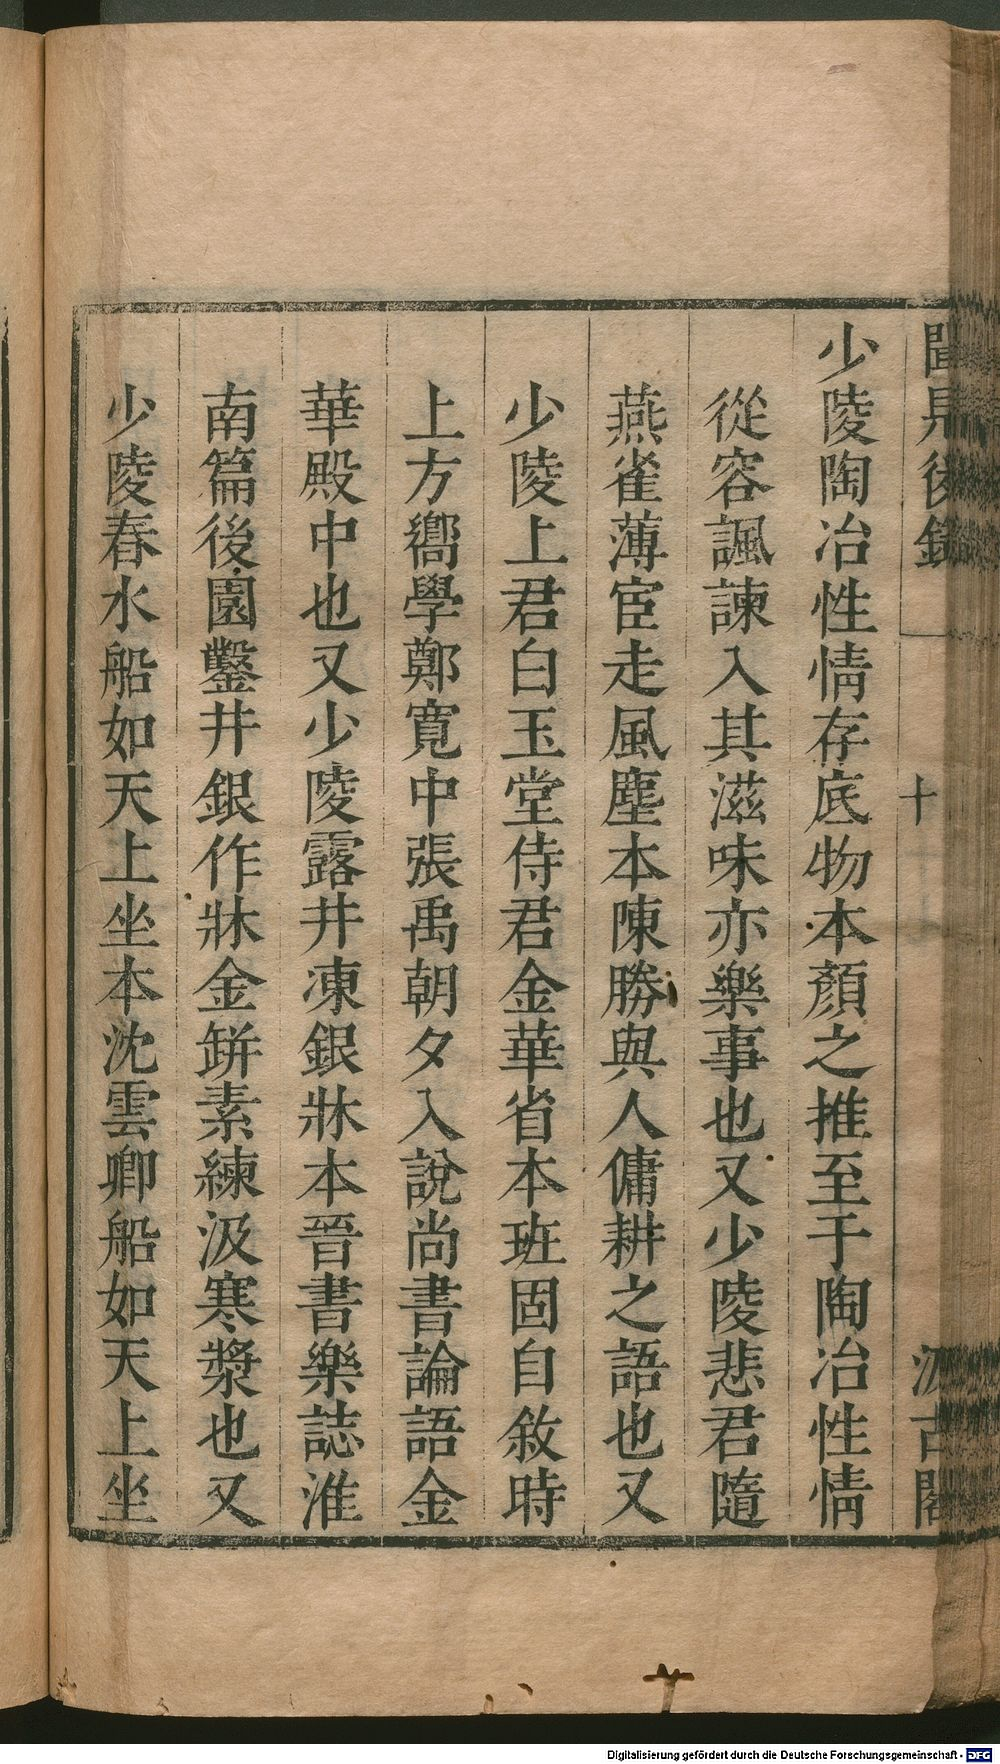 聞見後錄
十
汲古閣
少陵陶冶性情存底物本顏之推至于陶冶性情
從容諷諫入其滋味亦樂事也又少陵悲君隨
燕雀薄宦走風塵本陳勝與人傭耕之語也又
少陵上君白玉堂侍君金華省本班固自敘時
上方嚮學鄭寬中張禹朝夕入說尚書論語金
華殿中也又少陵露井凍銀牀本晉書樂誌淮
南篇後園鑿井銀作牀金缾素練汲寒漿也又
少陵春水船如天上坐本沈雲卿船如天上坐
Digitalisierung gefördert durch die Deutsche Forschungsgemeinschaft - DFG